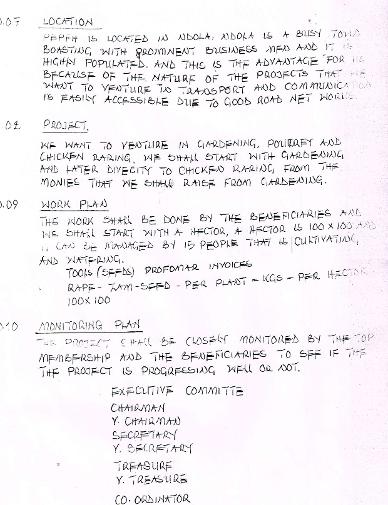 0.07 LOCATION
PEPFH IS LOCATED IN NDOLA. NDOLA IS A BUSY TOWN
BOASTING WITH PROMINENT BUSINESS MEN AND IT IS
HIGHLY POPULATED. AND THIS IS THE ADVANTAGE FOR
BECAUSE OF THE NATURE OF THE PROJECTS THAT WE
WANT TO VENTURE IN TRANSPORT AND COMMUNICATION
IS EASILY ACCESSIBLE DUE TO GOOD ROAD NET WORK.
PROJECT.
WE WANT TO VENTURE IN GARDENING, POULTRY AND
CHICKEN RARING. WE SHALL START WITH GARDENING
AND LATER DIVECITY TO CHICKEN RARING FROM THE
MONIES THAT WE SHALL RAISE FROM GARDENING.
0.09 WORK PLAN
THE WORK SHALL BE DONE BY THE BENEFICIARIES AND
WE SHALL START WITH A HECTOR, A HECTOR IS 100 X 100 AND
CAN BE MANAGED BY 15 PEOPLE THAT IS CULTIVATING,
AND WATERING.
TOOLS (SEEDS) PROFOMAR INVOICES
RAPE - - SEED - PER PLANT - KGS - PER HECTOR
100 X 100
010 MONITORING PLAN
THE PROJECT SHALL BE CLOSELY MONITORED BY THE TOP
MEMBERSHIP AND THE BENEFICIARIES TO SEE IF THE
THE PROJECT IS PROGRESSING WELL OR NOT.
EXECUTIVE COMMITTE
CHAIRMAN
V. CHAIRMAN
SECRETARY
V. SECRETARY
TREASURE
V. TREASURE
CO-ORDINATOR